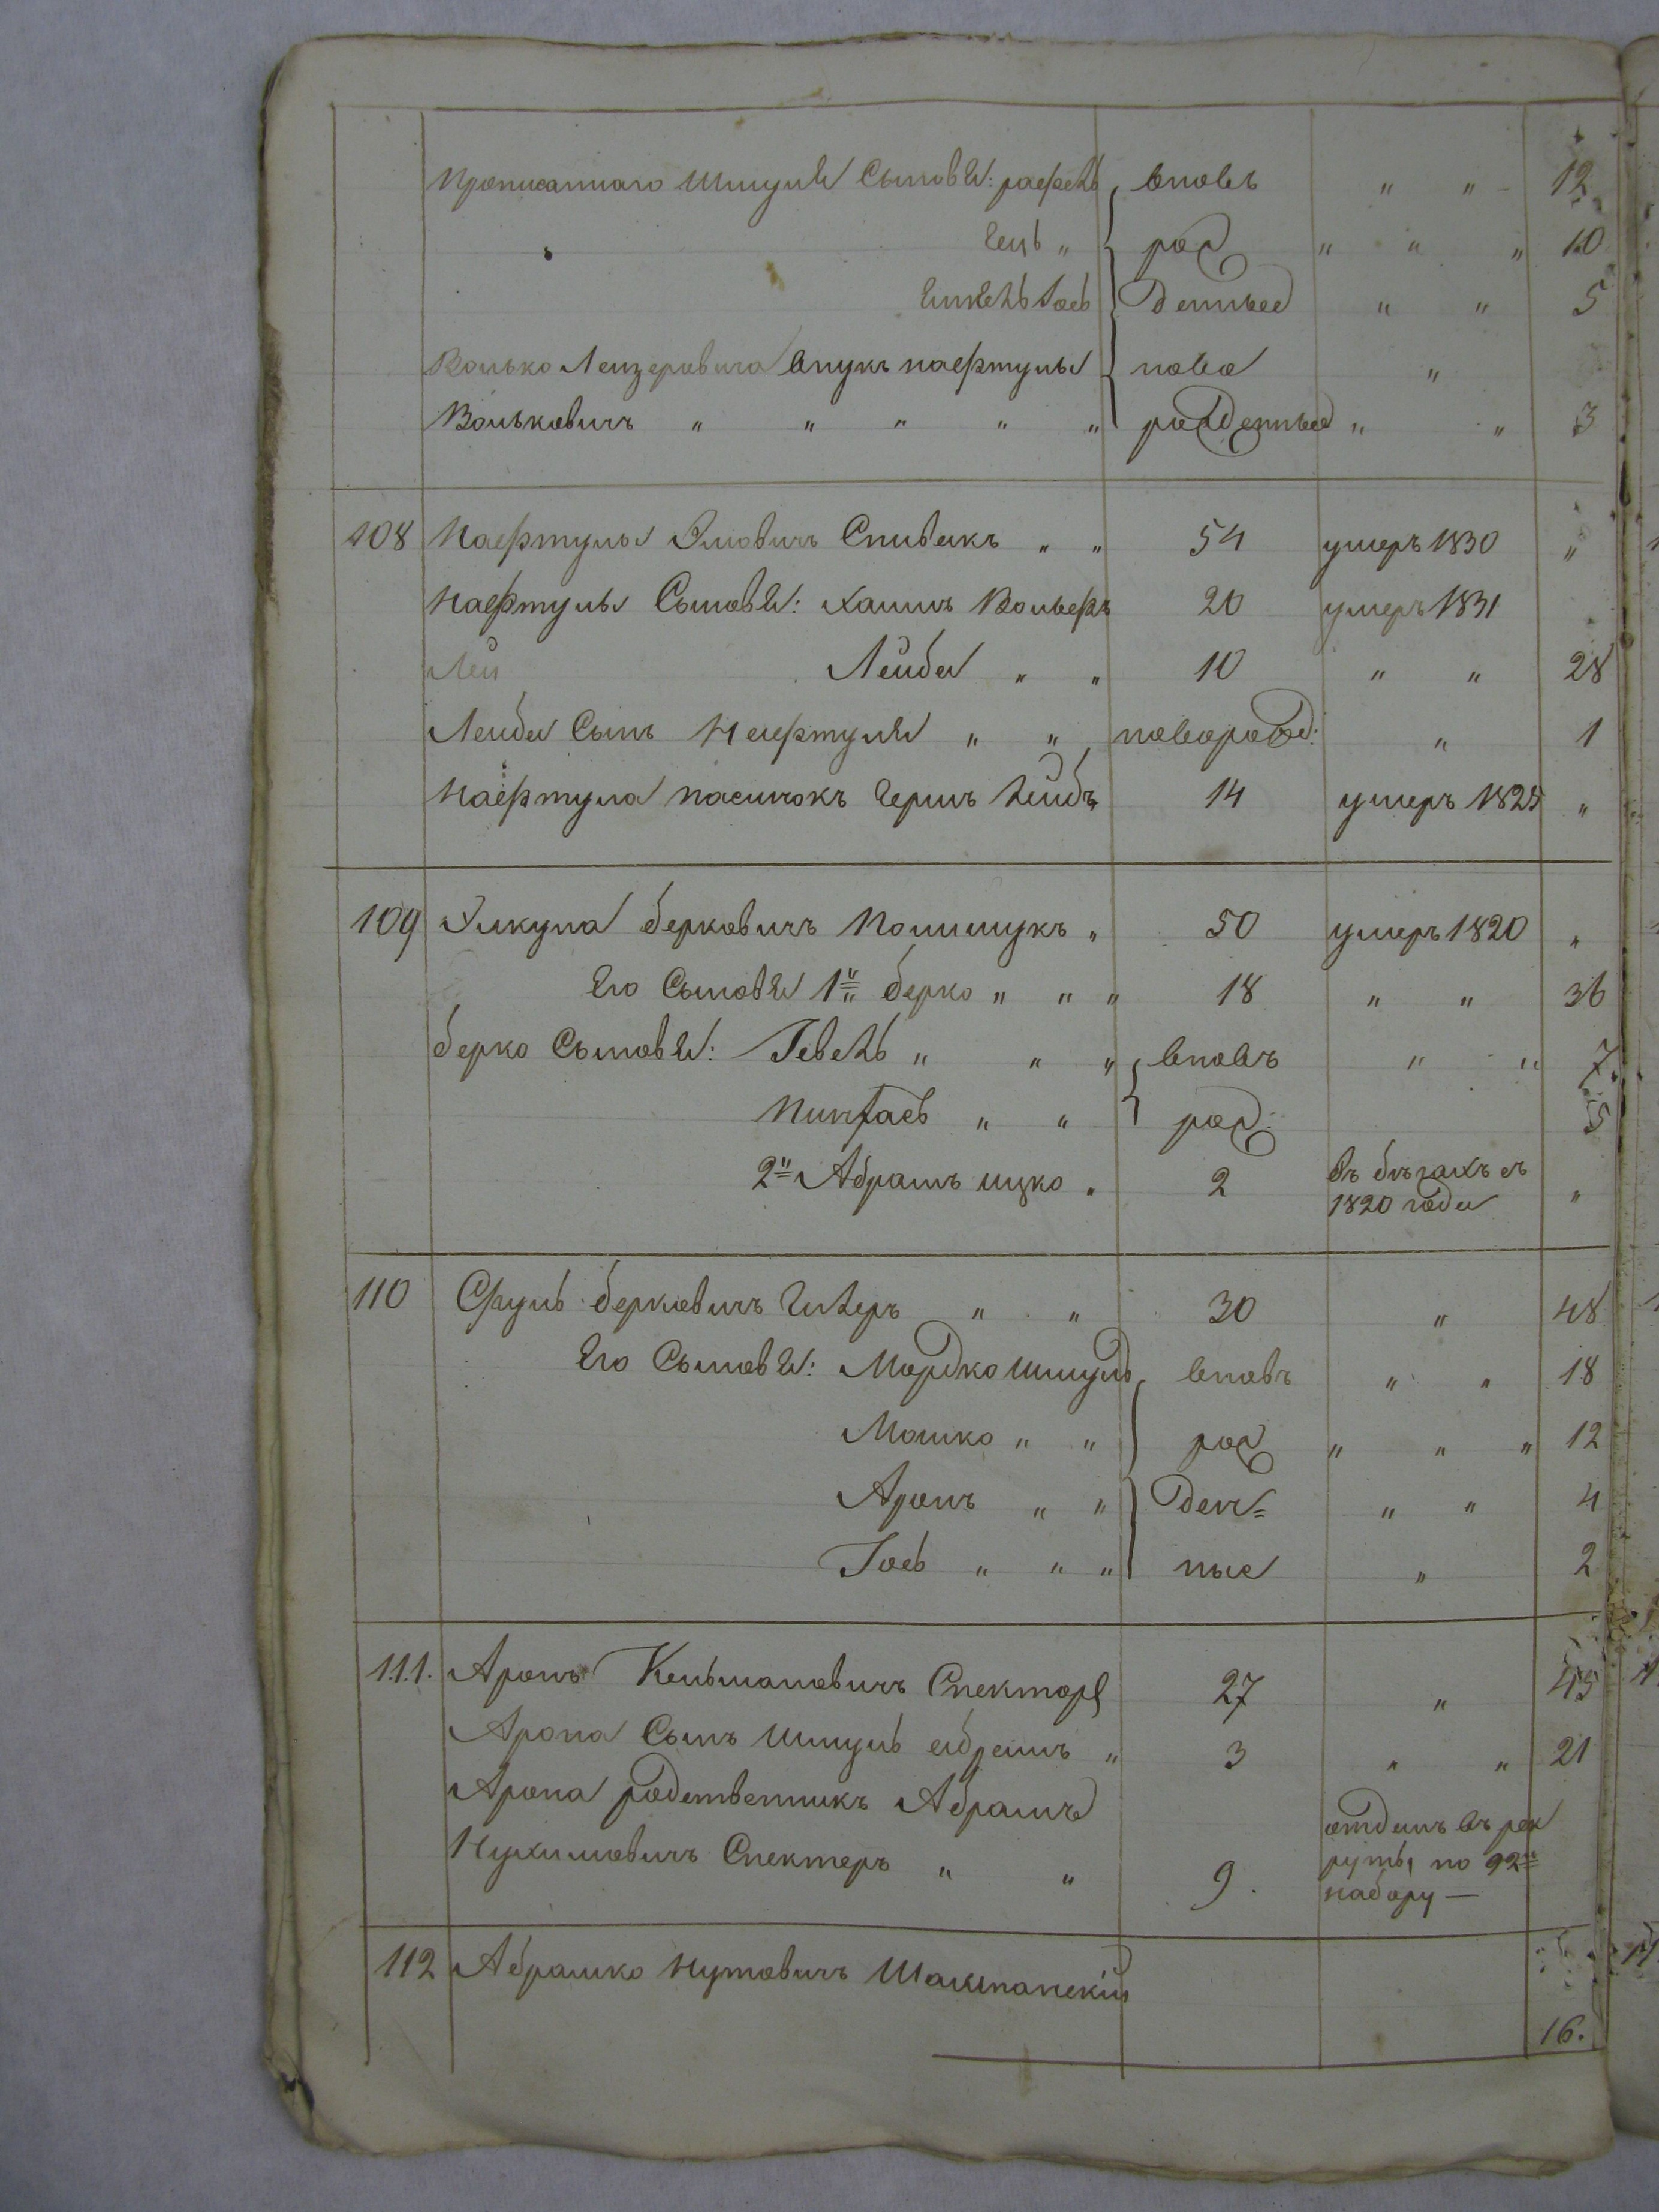 Прописаннаго Шмуля Сыновья: рафель вновъ " " 12
Гецъ " рож " " " 10
Іосъ денные " " 5
Волько Лейзеровича внукъ нафтулы ново "
Вольковичъ " " " " " рожденные " " 3
108 Нафтулы Элиовичъ Спивакъ " " 54 умеръ 1830 "
Нафтулы Сыновья: Хаимъ Вольфъ 20 умеръ 1831
Лей Лейба " " 10 " " 28
Лейбы Сынъ Нафтуля " " новорожд: " 1
Нафтула пасинокъ Герш Лейбъ 14 умеръ 1825 "
109 Элкуна берковичъ Полищукъ " 50 умеръ 1820 "
Его Сыновья 1й берко " " " 18 " " 36
берко Сыновья: Гевель " " " вновъ " " 7
Пинхасъ " " рож: 5
2й Абрамъ ицко " 2 въ бѣгахъ съ
1820 года "
110 Сруль берковичъ " " 30 " 48
Его Сыновья: Мордко Шмуль вновъ " " 18
Мошко " " рож " " " 12
Аронъ " " ден= " " 4
Іосъ " " " ные " 2
111. Аронъ Кельмановичъ Спекторъ 27 " 45
Арона Сынъ Шмуль абрамъ " 3 " " 21
Арона родственникъ Абрамъ
Нухимовичъ Спекторъ " " 9. отданъ въ рек
руты по 92й
набору —
112 Абрашко Нутовичъ
16.